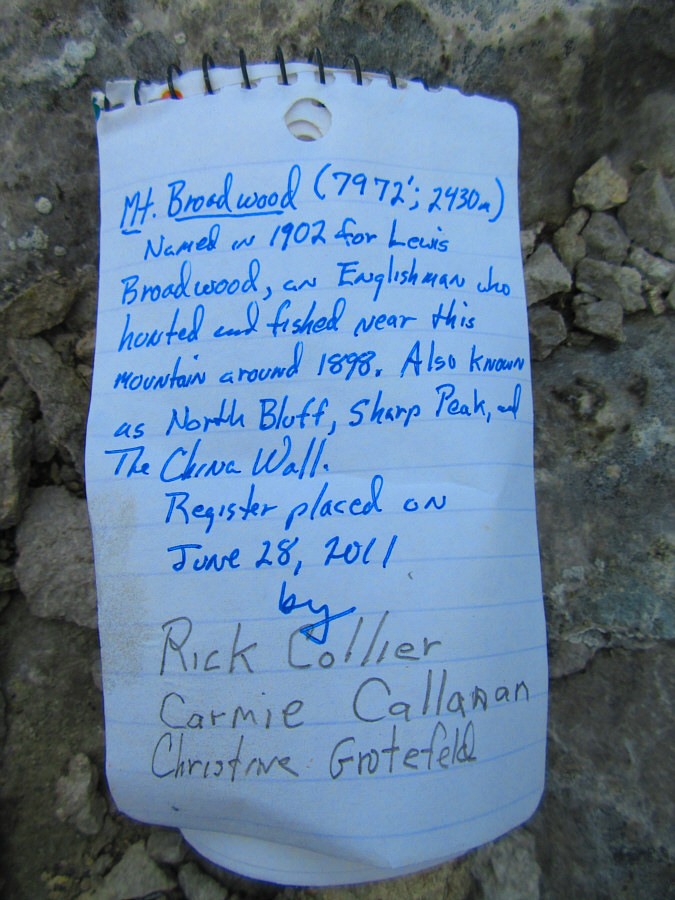 Mt. Broadwood (7972'; 2430m)
Named in 1902 for Lewis
Broadwood, an Englishman who
hunted and fished near this
mountain around 1898. Also known
as North Bluff, Sharp Peak, and
The China Wall.
Register placed on
June 28, 2011
by
Rick Collier
Carmie Callanan
Christine Grotefeld